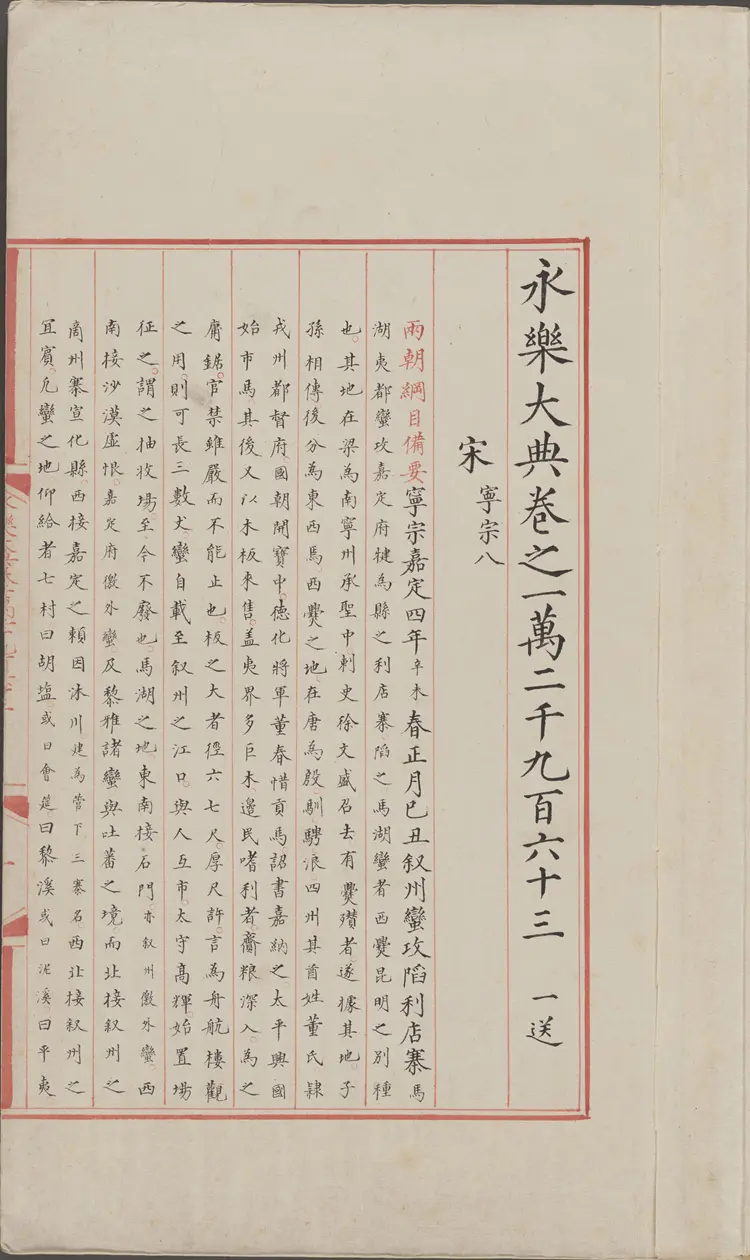 永樂大典卷之一萬二千九百六十三 一送
宋 寧宗八
兩朝綱目備要寧宗嘉定四年辛未春正月已丑叙州蠻攻䧟利店寨馬
湖夷都蠻攻嘉定府犍為縣之利店寨䧟之馬湖蠻者西㸑昆明之別種
也其地在梁為南寧州承聖中刺史徐文盛召去有㸑瓚者遂據其地子
孫相傳後分為東西馬西㸑之地在唐為殷馴騁浪四州其酋姓董氏隷
戎州都督府國朝開寶中德化將軍董春惜貢馬詔書嘉納之太平興國
始市馬其後又以木板來售蓋夷界多巨木邉民嗜利者齎粮深入為之
庸鋸官禁雖嚴而不能止也板之大者徑六七尺厚尺許言為舟航樓觀
之用則可長三數丈蠻自載至叙州之江口與人互市太守高輝始置場
征之謂之抽收場至今不廢也馬湖之地東南接石門亦叙州徼外蠻西
南接沙漠虛恨嘉定府徼外蠻及黎雅諸蠻與吐蕃之境而北接叙州之
商州寨宣化縣西接嘉定之賴因沐川建為管下三寨名西北接叙州之
宜賓凡蠻之地仰給者七村曰胡塩或曰會筵曰黎溪或曰泥溪曰平夷